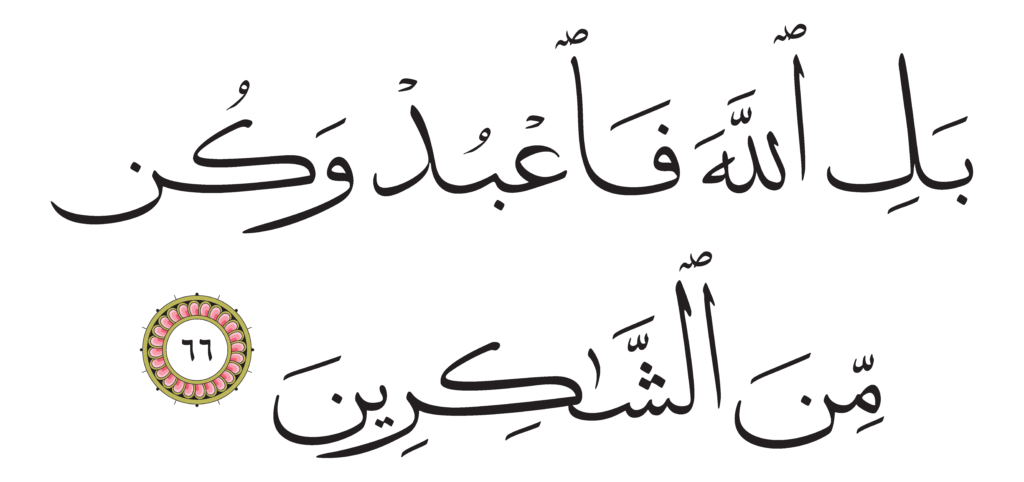 بَلِ ٱللَّهَ فَٱعْبُدْ وَكُن
مِّنَ ٱلشَّـٰكِرِينَ ٦٦